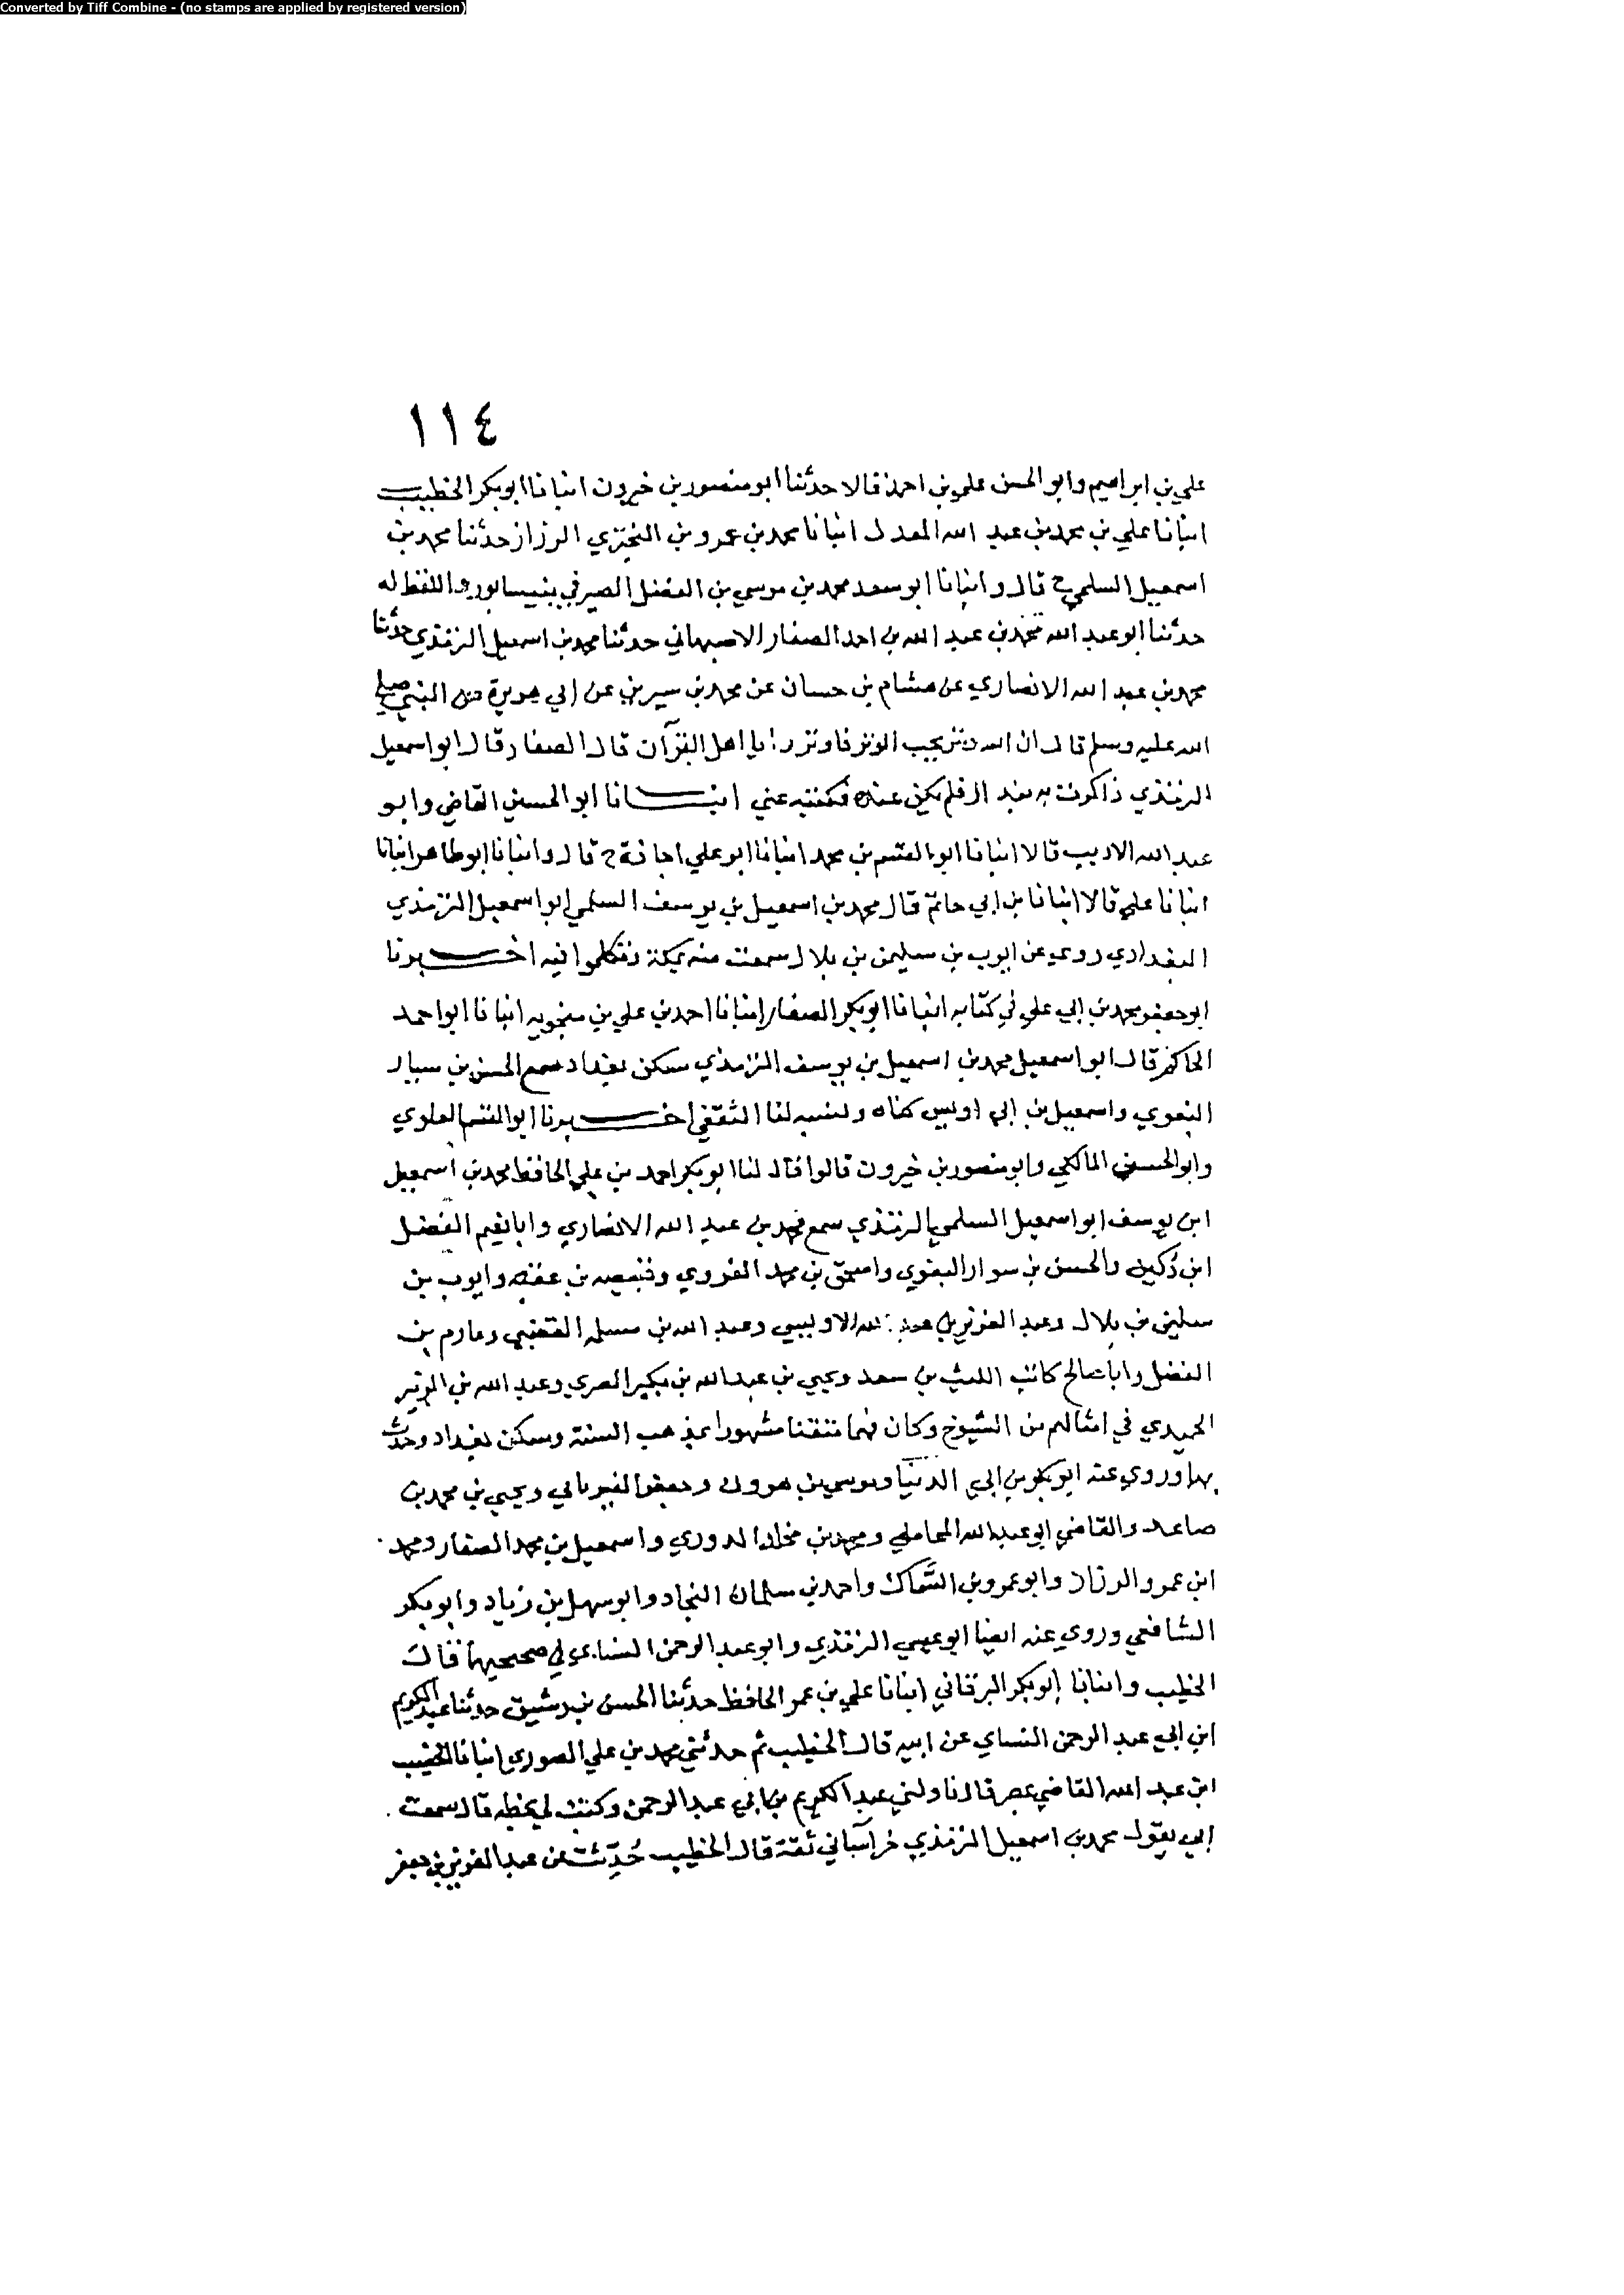 Converted by Tiff Combine - (no stamps are applied by registered version)
١١٤
علي بن ابراهيم وابو الحسن علي بن احمد قالا حدثنا ابو منصور بن خيرون انبانا ابو بكر الخطيب
انبانا علي بن محمد بن عبد الله المعدل انبانا محمد بن عمرو بن البختري الرزاز حدثنا محمد بن
اسمعيل السلمي ح قال وانبانا ابو سعد محمد بن موسي بن الفضل الصيرفي بنيسابور واللفظ له
حدثنا ابو عبد الله محمد بن عبد الله بن احمد الصفار الاصبهاني حدثنا محمد بن اسمعيل الترمذي حدثنا
محمد بن عبد الله الانصاري عن هشام بن حسان عن محمد بن سيرين عن ابي هريرة عن النبي صلي
الله عليه وسلم قال ان الله وتر يحب الوتر فاوتروا يا اهل القرآن قال الصفار قال ابو اسمعيل
الترمذي ذاكرت به فلم يكن عنده فكتبه عني انبانا ابو الحسين القاضي وابو
عبد الله الاديب قالا انبانا ابو القسم بن محمد انبانا ابو علي اجازة ح قال وانبانا ابو طاهر انبانا
انبانا علي قالا انبانا بن ابي حاتم قال محمد بن اسمعيل بن يوسف السلمي ابو اسمعيل الترمذي
البغدادي روي عن ايوب بن سليمن بن بلال سمعت منه بمكة وتكلموا فيه اخبرنا
ابو جعفر محمد بن ابي علي في كتابه انبانا ابو بكر الصفار انبانا احمد بن علي بن منجويه انبانا ابو احمد
الحاكم قال ابو اسمعيل محمد بن اسمعيل بن يوسف الترمذي سكن بغداد سمع الحسن بن سيار
البغوي واسمعيل بن ابي اويس كناه ونسبه لنا الثقفي اخبرنا ابو القسم العلوي
وابو الحسن المالكي وابو منصور بن خيرون قالوا قال لنا ابو بكر احمد بن علي الحافظ محمد بن اسمعيل
ابن يوسف ابو اسمعيل السلمي الترمذي سمع محمد بن عبد الله الانصاري وابا نعيم الفضل
ابن دُكين والحسن بن سوار البغوي واسحق بن محمد الفروي وقبيصه بن عقبه وايوب بن
سليمن بن بلال وعبد العزيز بن عبد الله الاويسي وعبد الله بن مسلمه القعنبي وعارم بن
الفضل وابا صالح كاتب الليث بن سعد ويحيي بن عبد الله بن بكير المصري وعبد الله بن الزبير
الحميدي في امثالهم من الشيوخ وكان فهما متقنا مشهورا بمذهب السنة وسكن بغداد وحدث
بها وروي عنه ابو بكر بن ابي الدنيا وموسي بن هرون وجعفر الفريابي ويحيي بن محمد بن
صاعد والقاضي ابو عبد الله المحاملي ومحمد بن مخلد الدوري واسمعيل بن محمد الصفار ومحمد
ابن عمرو الرزاز وابو عمرو بن السَّماك واحمد بن سلمان النجاد وابو سهل بن زياد وابو بكر
الشافعي وروي عنه ايضا ابو عيسي الترمذي وابو عبد الرحمن النسايي في صحيحيهما قال
الخطيب وانبانا ابو بكر البرقاني انبانا علي بن عمر الحافظ حدثنا الحسن بن رشيق حدثنا عبد الكريم
ابن ابي عبد الرحمن النساي عن ابيه قال الخطيب ثم حدثني محمد بن علي الصوري انبانا الخصيب
ابن عبد الله القاضي بمصر قال ناولني عبد الكريم بن ابي عبد الرحمن وكتب لي بخطه قال سمعت
ابي يقول محمد بن اسمعيل الترمذي خراساني ثقة قال الخطيب حُدِّثت عن عبد العزيز بن جعفر